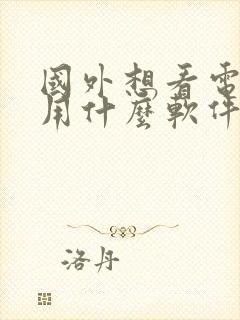 國外想看電
用什麼軟件
洛丹